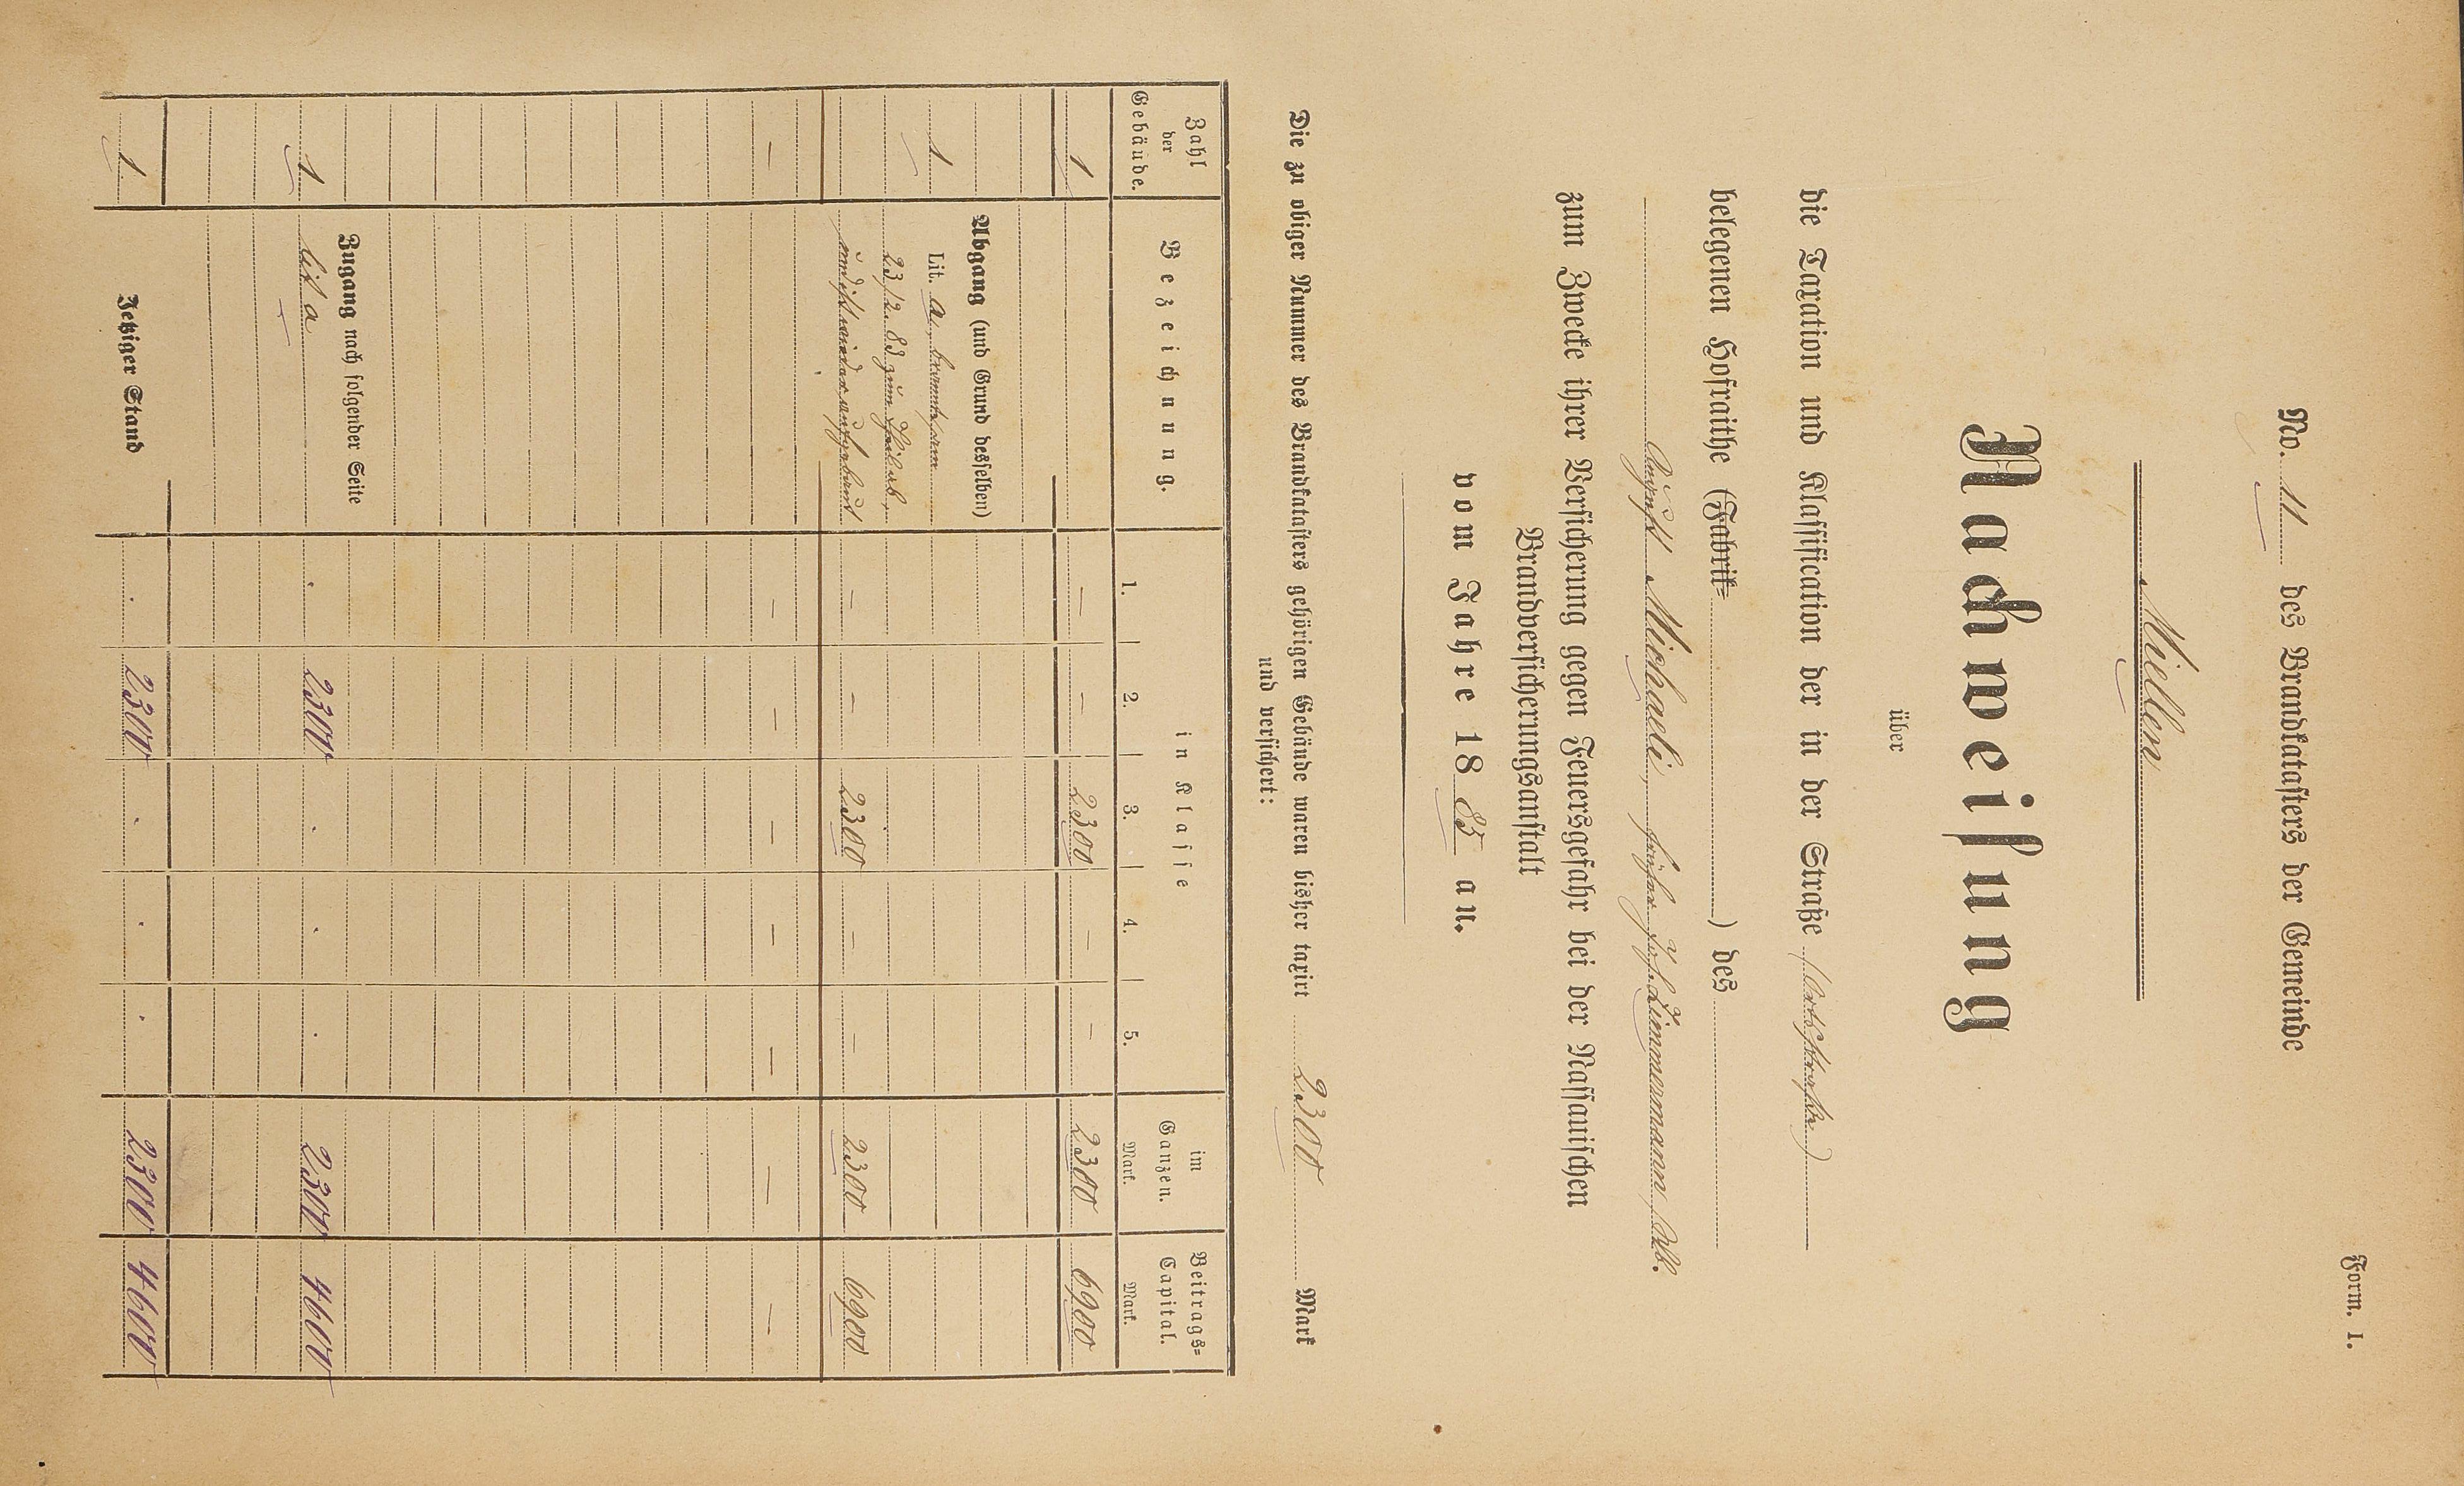 Form. I.
No. 11 des Brandkatasters der Gemeinde
Miellen
Nachweisung
über
die Taxation und Klassification der in der Straße (Ortsstraße)
belegenen Hofraithe (Fabrik= ) des
August Michaeli, früher Joh. Zimmermann,
zum Zwecke ihrer Versicherung gegen Feuersgefahr bei der Nassauischen
Brandversicherungsanstalt
vom Jahre 1885 an.
Die zu obiger Nummer des Brandkatasters gehörigen Gebäude waren bisher taxirt 2300 Mark
und versichert:
Zahl der Gebäude. Bezeichnung. in Klasse im Ganzen. Beitrags=Capital.
1. 2. 3. 4. 5. Mark. Mark.
1 — — 2300 — — 2300 6900
Abgang (und Grund desselben)
1 Lit. a, brannte am
23/2. 83 zum Theil ab,
und ist wieder aufgebaut — — 2300 — — 2300 6900
— — — — — — — —
Zugang nach folgender Seite
1 lit a . 2300 . . . 2300 4600
1 Jetziger Stand . 2300 . . . 2300 4600